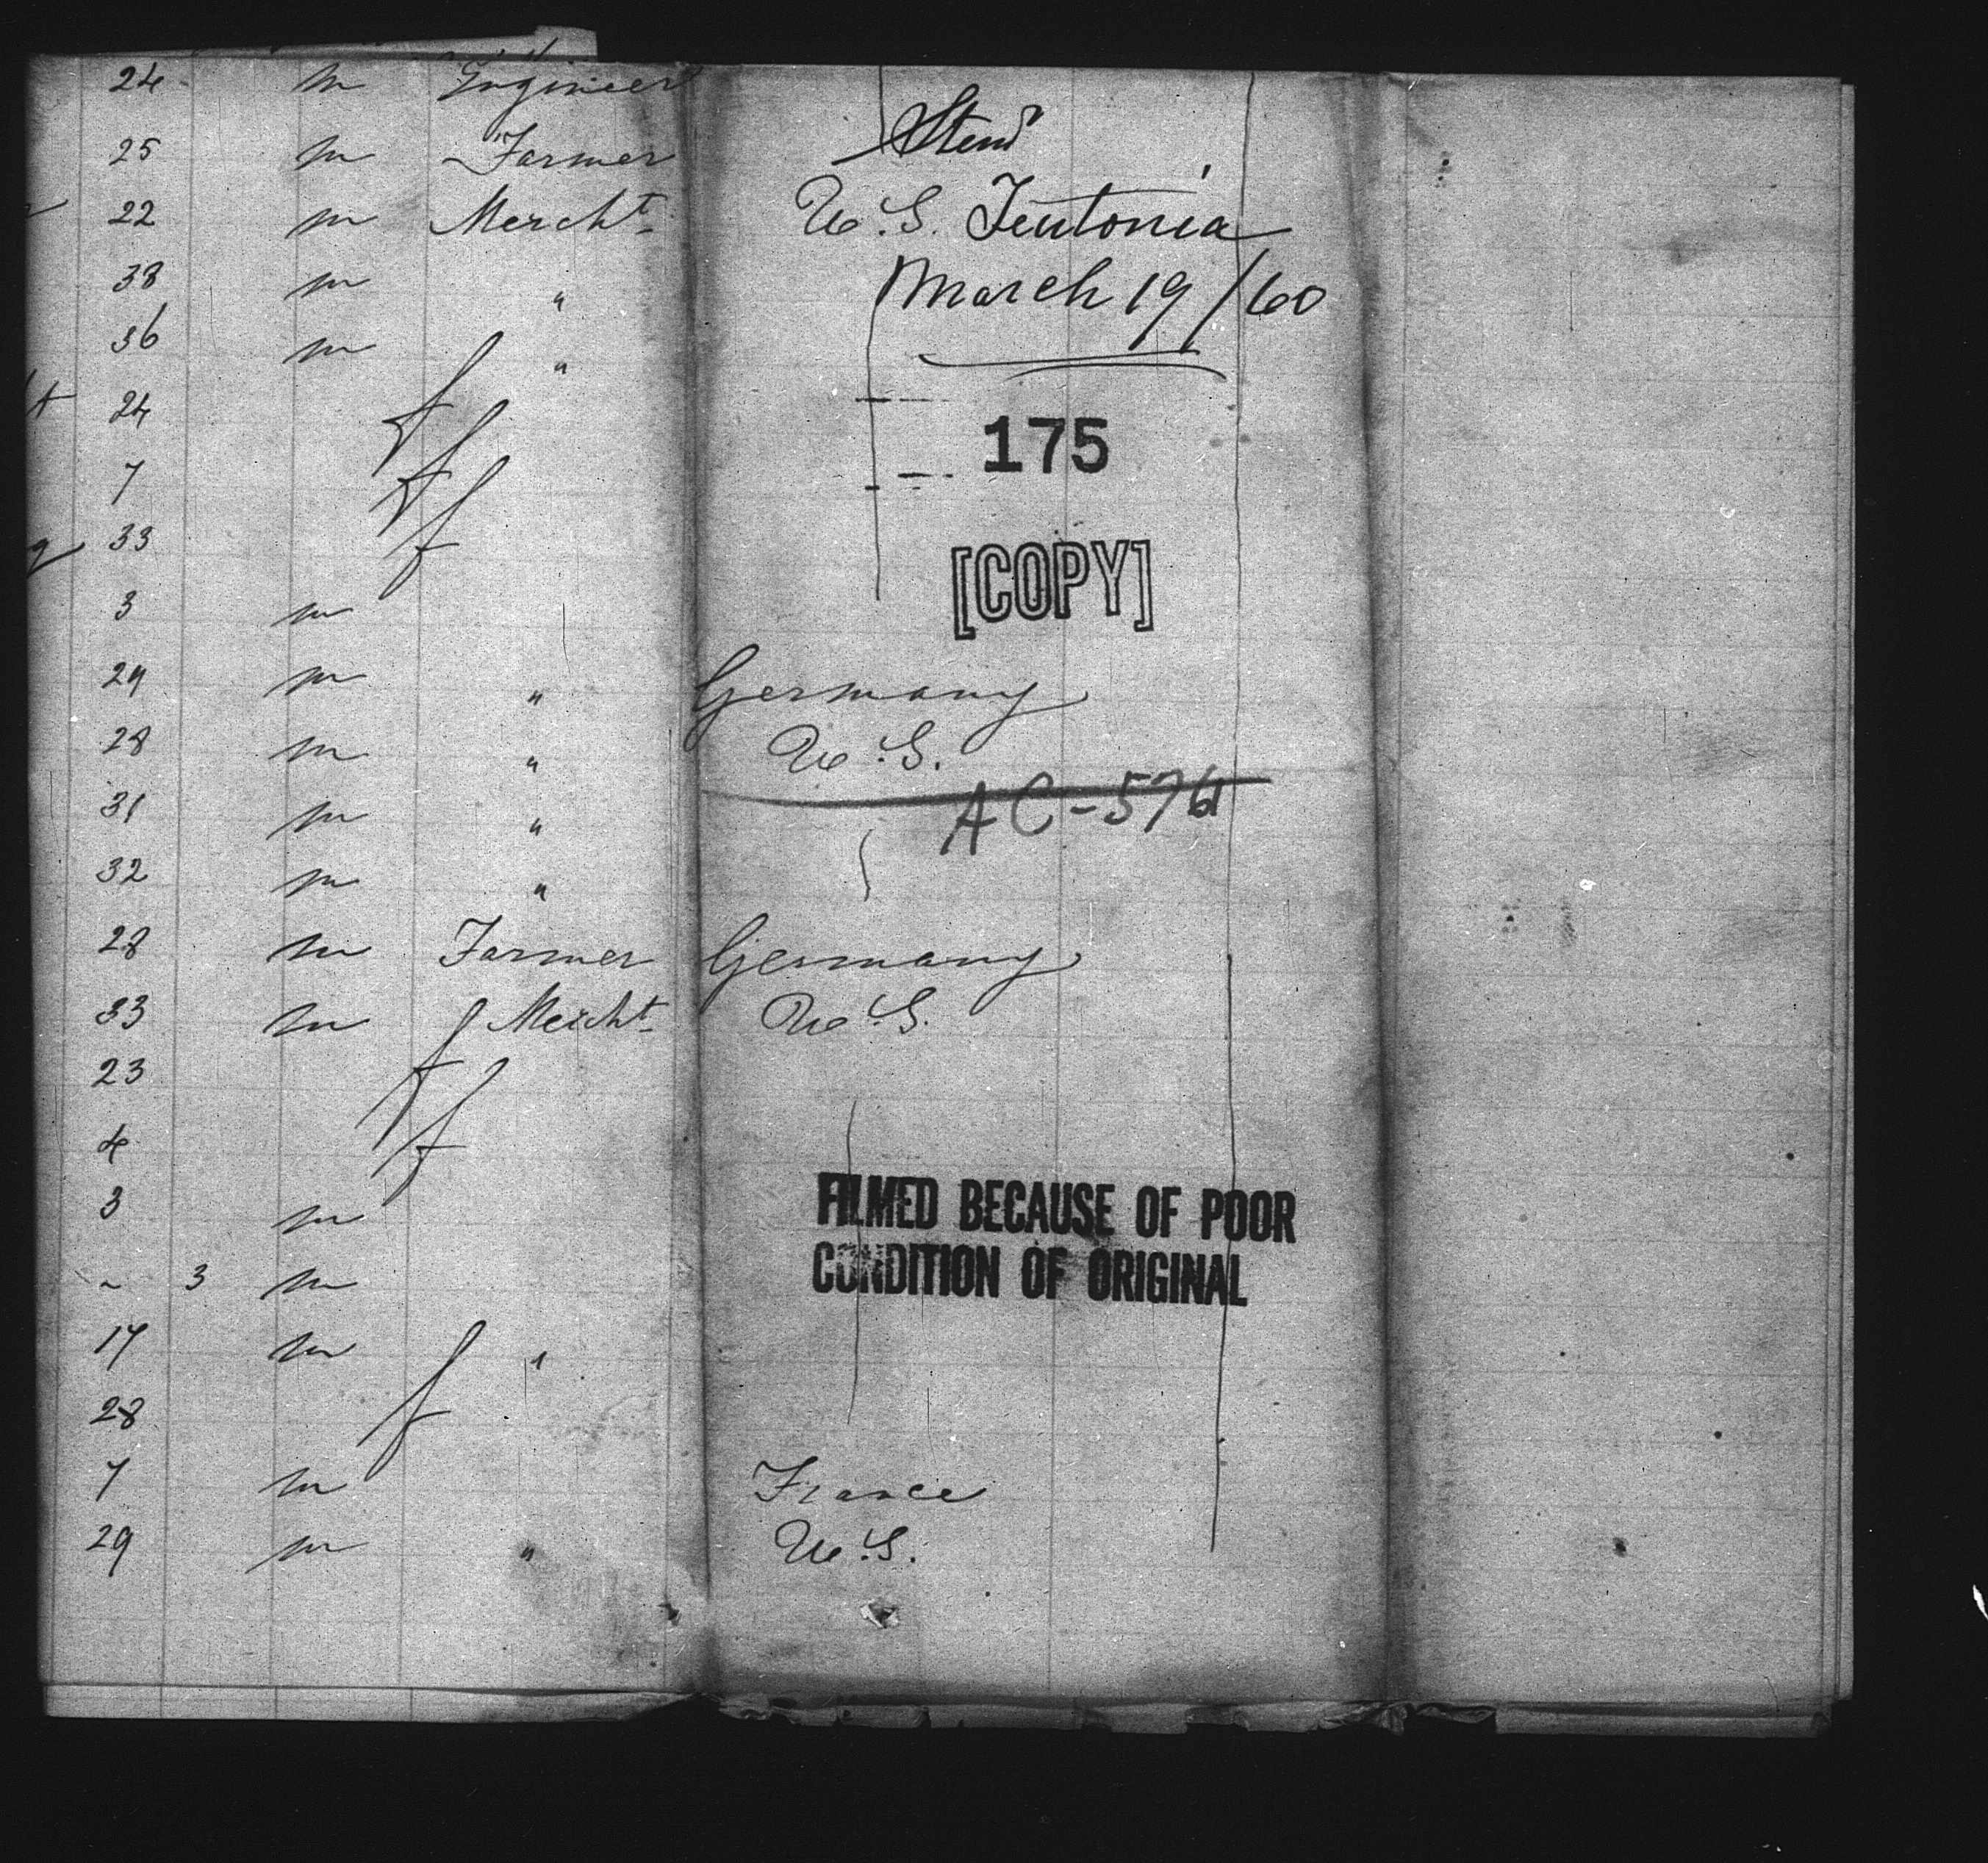 24 m Engineer
25 m Farmer
22 m Mercht.
38 m "
36 m "
24 f
7 f
33 f
3 m
29 m " Germany
28 m " U.S.
31 m "
32 m "
28 m Farmer Germany
33 m Mercht. U.S.
23 f
4 f
3 m
~ 3 m
17 m "
28 f
7 m France
29 m " U.S.
Stemr
U.S. Teutonia
March 19/60
175
[COPY]
AC-576
FILMED BECAUSE OF POOR
CONDITION OF ORIGINAL